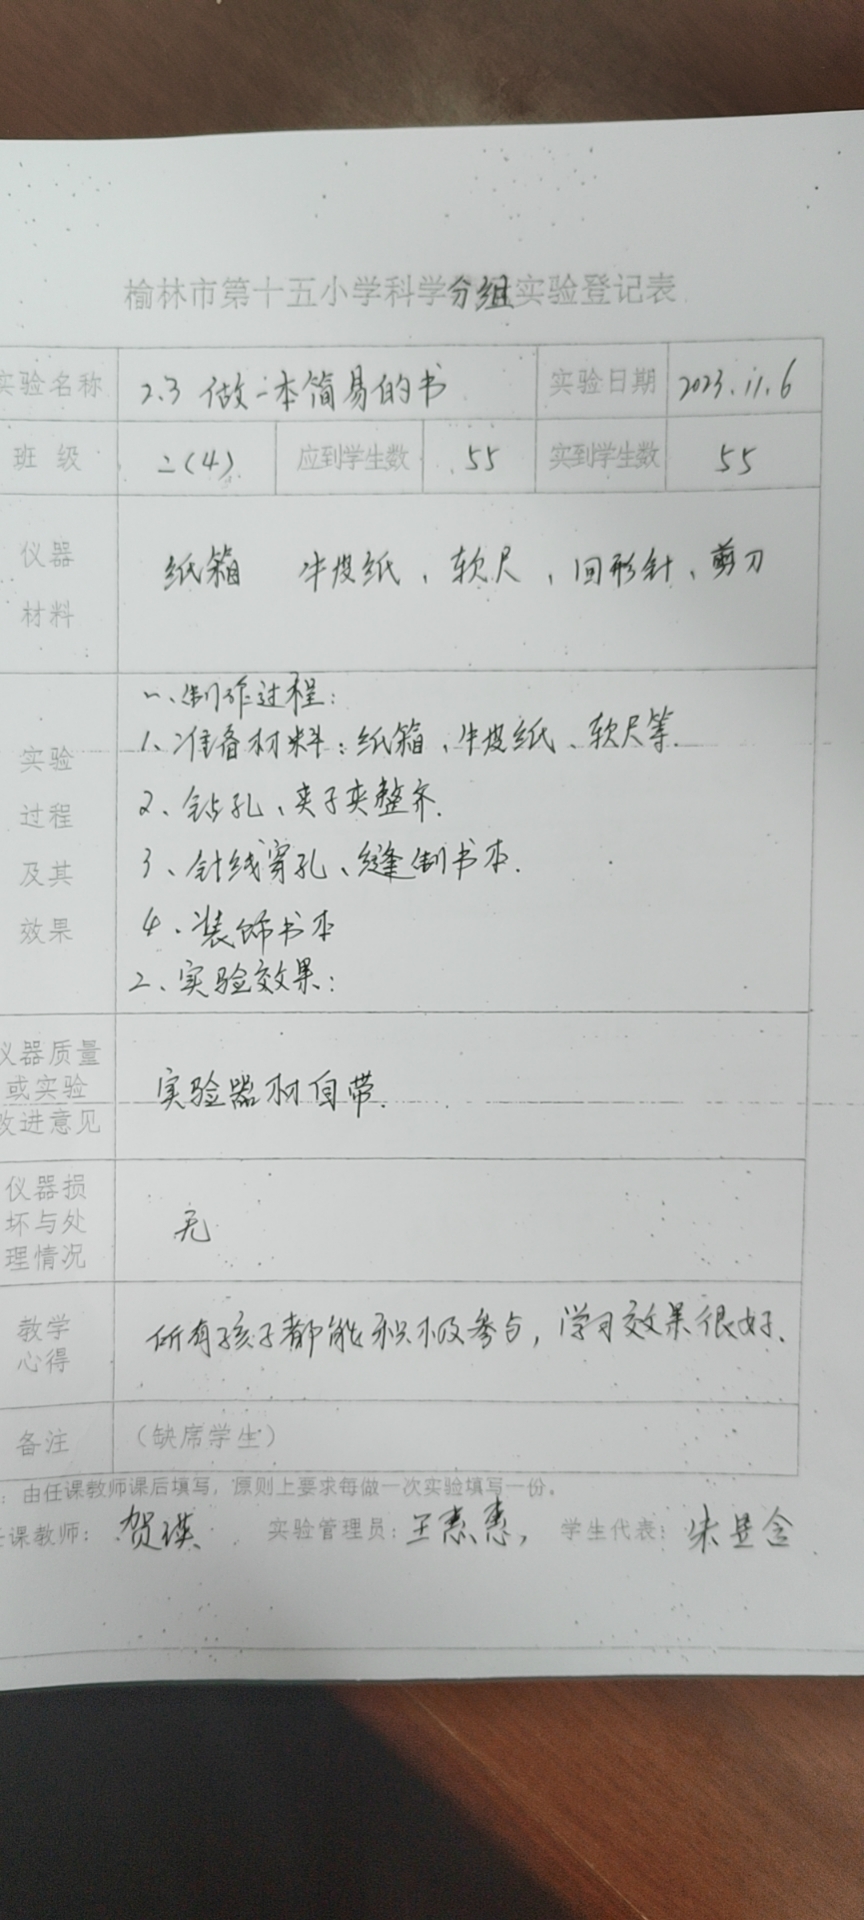 榆林市第十五小学科学分组实验登记表
实验名称 2.3 做一本简易的书 实验日期 2023.11.6
班 级 二(4) 应到学生数 55 实到学生数 55
仪器
材料
纸箱 牛皮纸、软尺、回形针、剪刀
实验
过程
及其
效果
一、制作过程:
1、准备材料:纸箱、牛皮纸、软尺等.
2、钻孔、夹子夹整齐.
3、针线穿孔、缝制书本.
4、装饰书本
2、实验效果:
仪器质量
或实验
改进意见
实验器材自带.
仪器损
坏与处
理情况
无
教学
心得
所有孩子都能积极参与,学习效果很好、
备注 (缺席学生)
:由任课教师课后填写,原则上要求每做一次实验填写一份。
任课教师: 贺瑛 实验管理员: 王惠惠, 学生代表: 朱